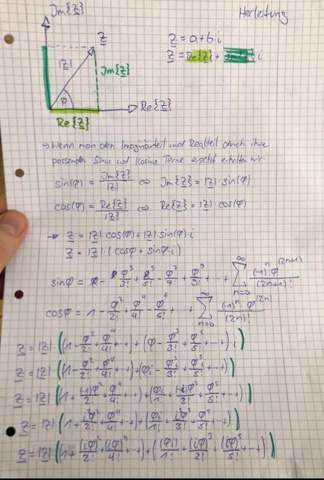 Herleitung
Jm{z}
z
|z|
Jm{z}
φ
Re{z}
Re{z}
z = a+b·i
z = Re{z} + i
→ Wenn man den Imaginärteil und Realteil durch ihre
passenden Sinus und Kosinus Terme ersetzt erhalten wir
sin(φ) = Jm{z}/|z| ⇔ Jm{z} = |z|·sin(φ)
cos(φ) = Re{z}/|z| ⇔ Re{z} = |z|·cos(φ)
→ z = |z|·cos(φ) + |z|·sin(φ)·i
z = |z|·(cosφ + sinφ·i)
sinφ = φ³/3! + φ⁵/5! - φ⁷/7! + φ⁹/9! + ... + ∑ n=0 ∞ (-1)ⁿ·φ^(2n+1)/(2n+1)!
cosφ = 1 - φ²/2! + φ⁴/4! - φ⁶/6! + ... + ∑ n=0 ∞ (-1)ⁿ·φ^(2n)/(2n)!
z = |z|·(1 - φ²/2! + φ⁴/4! + ... + (φ - φ³/3! + φ⁵/5! + ...)i)
z = |z|·(1 - φ²/2! + φ⁴/4! + ... + φi - φ³i/3! + φ⁵i/5! + ...)
z = |z|·(1 + (-1)φ²/2! + φ⁴/4! + ... + φi/1! + (-1)φ³/3! + φ⁵/5! + ...)
z = |z|·(1 + i²φ²/2! + φ⁴/4! + ... + φi/1! + φ³/3! + φ⁵/5! + ...)
z = |z|·(1 + (iφ)²/2! + (iφ)⁴/4! + ... + (φi)/1! + (iφ)³/3! + (iφ)⁵/5! + ...)